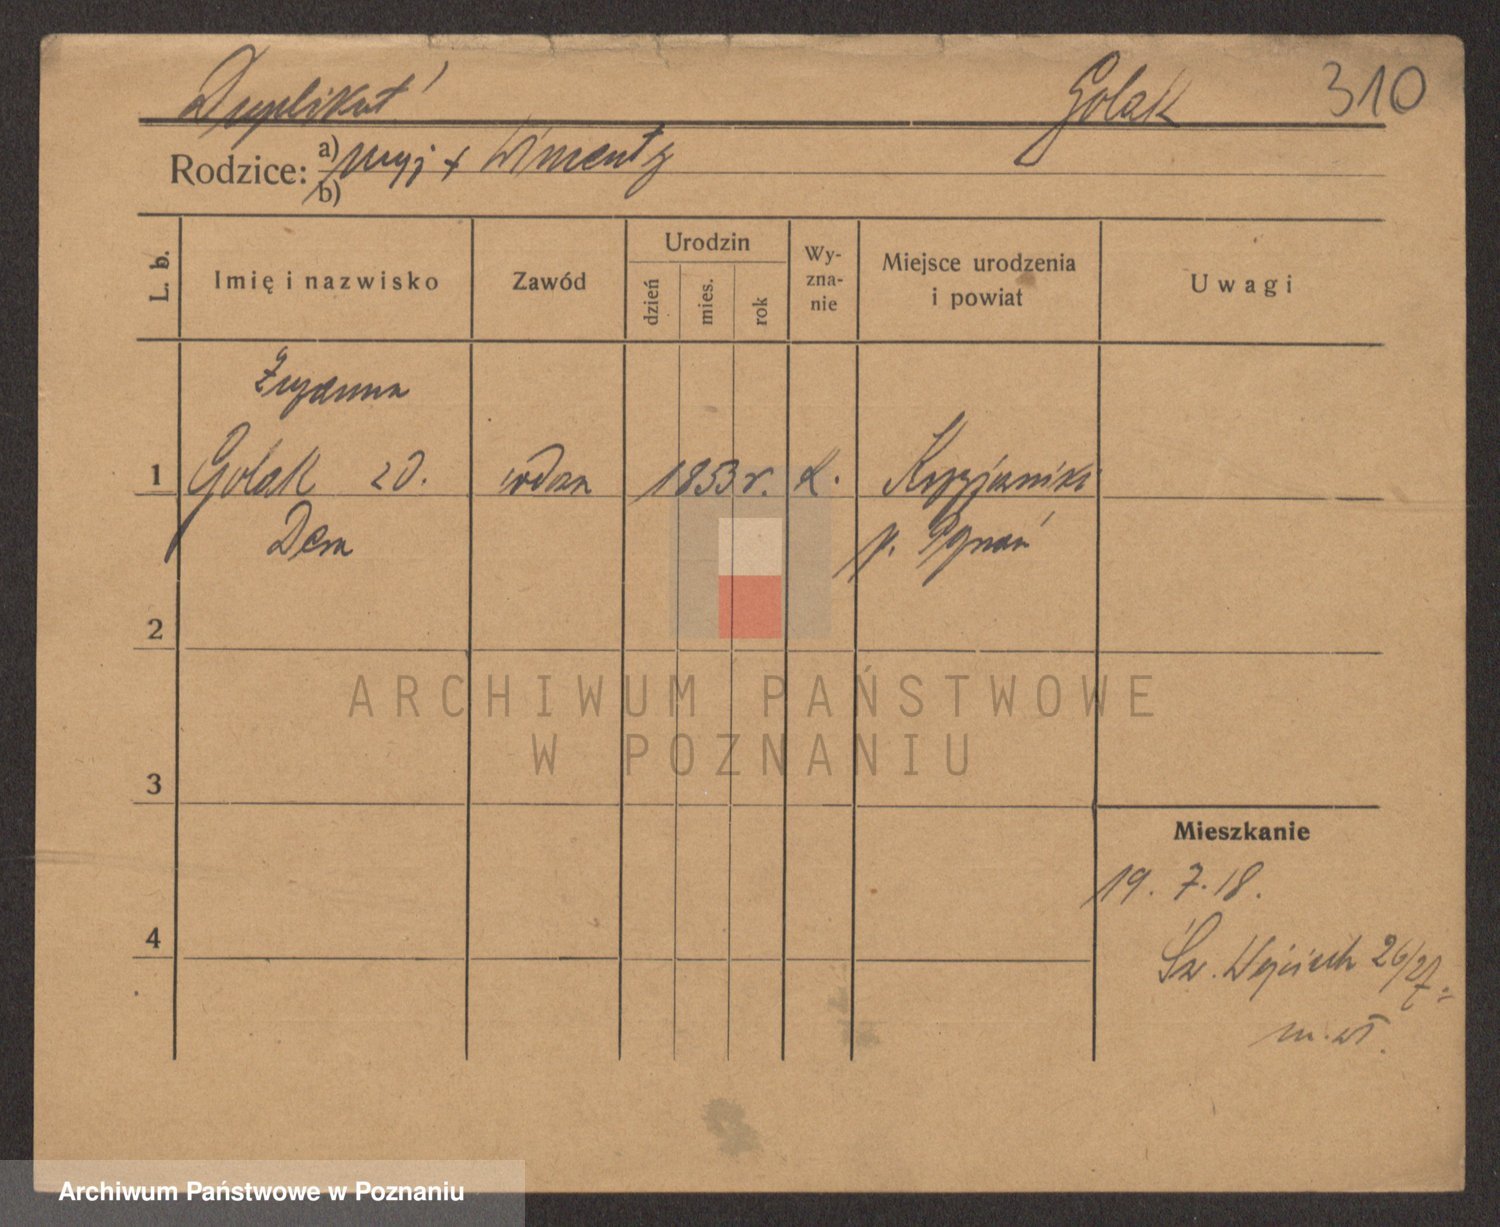 Duplikat Golak 310
Rodzice: a) mąż + Wincenty
b)
L. b. Imię i nazwisko Zawód Urodzin dzień mies. rok Wy-zna-nie Miejsce urodzenia i powiat Uwagi
Zuzanna
1 Golak zd. wdowa 1853 r. k. Krzyżowniki
Dera p. Poznań
2
3
Mieszkanie
19. 7. 18.
4
Św. Wojciech 26/27
m. wł.
ARCHIWUM PAŃSTWOWE
W POZNANIU
Archiwum Państwowe w Poznaniu